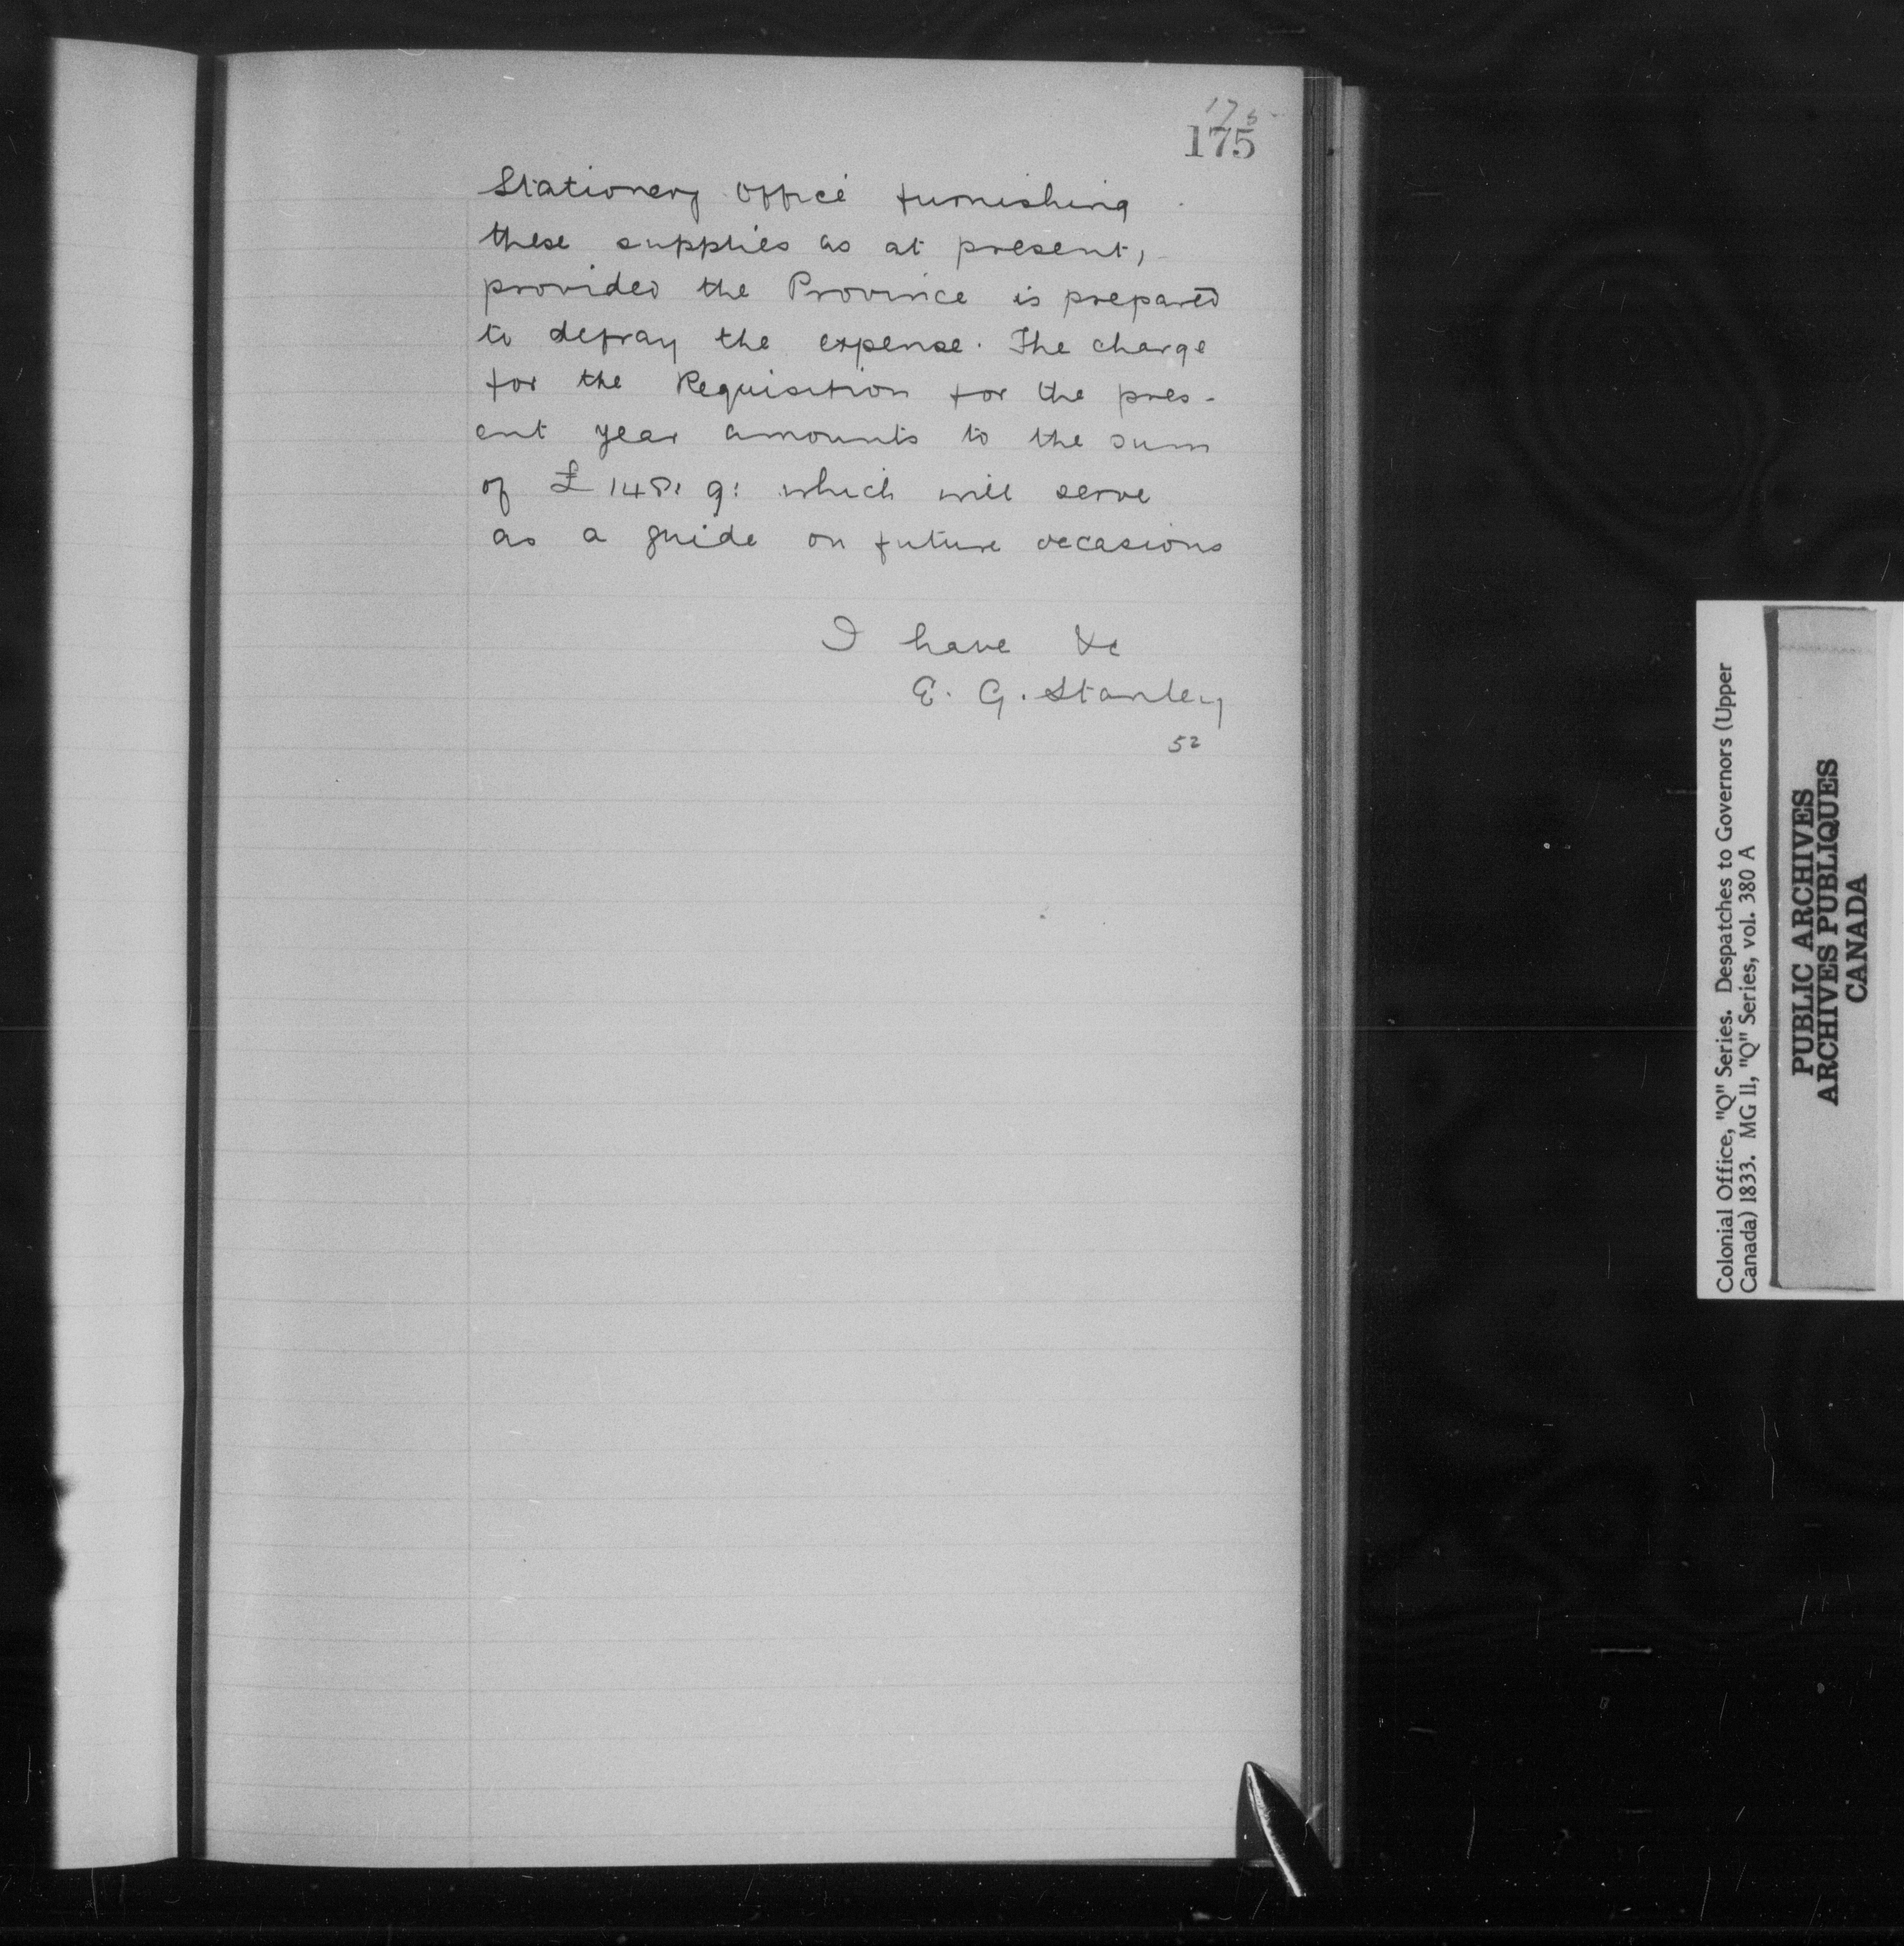 175
175
Stationery Office furnishing
these supplies as at present,
provided the Province is prepared
to defray the expense. The charge
for the Requisition for the pres-
ent year amounts to the sum
of £148: 9: which will serve
as a guide on future occasions
I have &c
E. G. Stanley
52
Colonial Office, "Q" Series. Despatches to Governors (Upper
Canada) 1833. MG 11, "Q" Series, vol. 380 A
PUBLIC ARCHIVES
ARCHIVES PUBLIQUES
CANADA